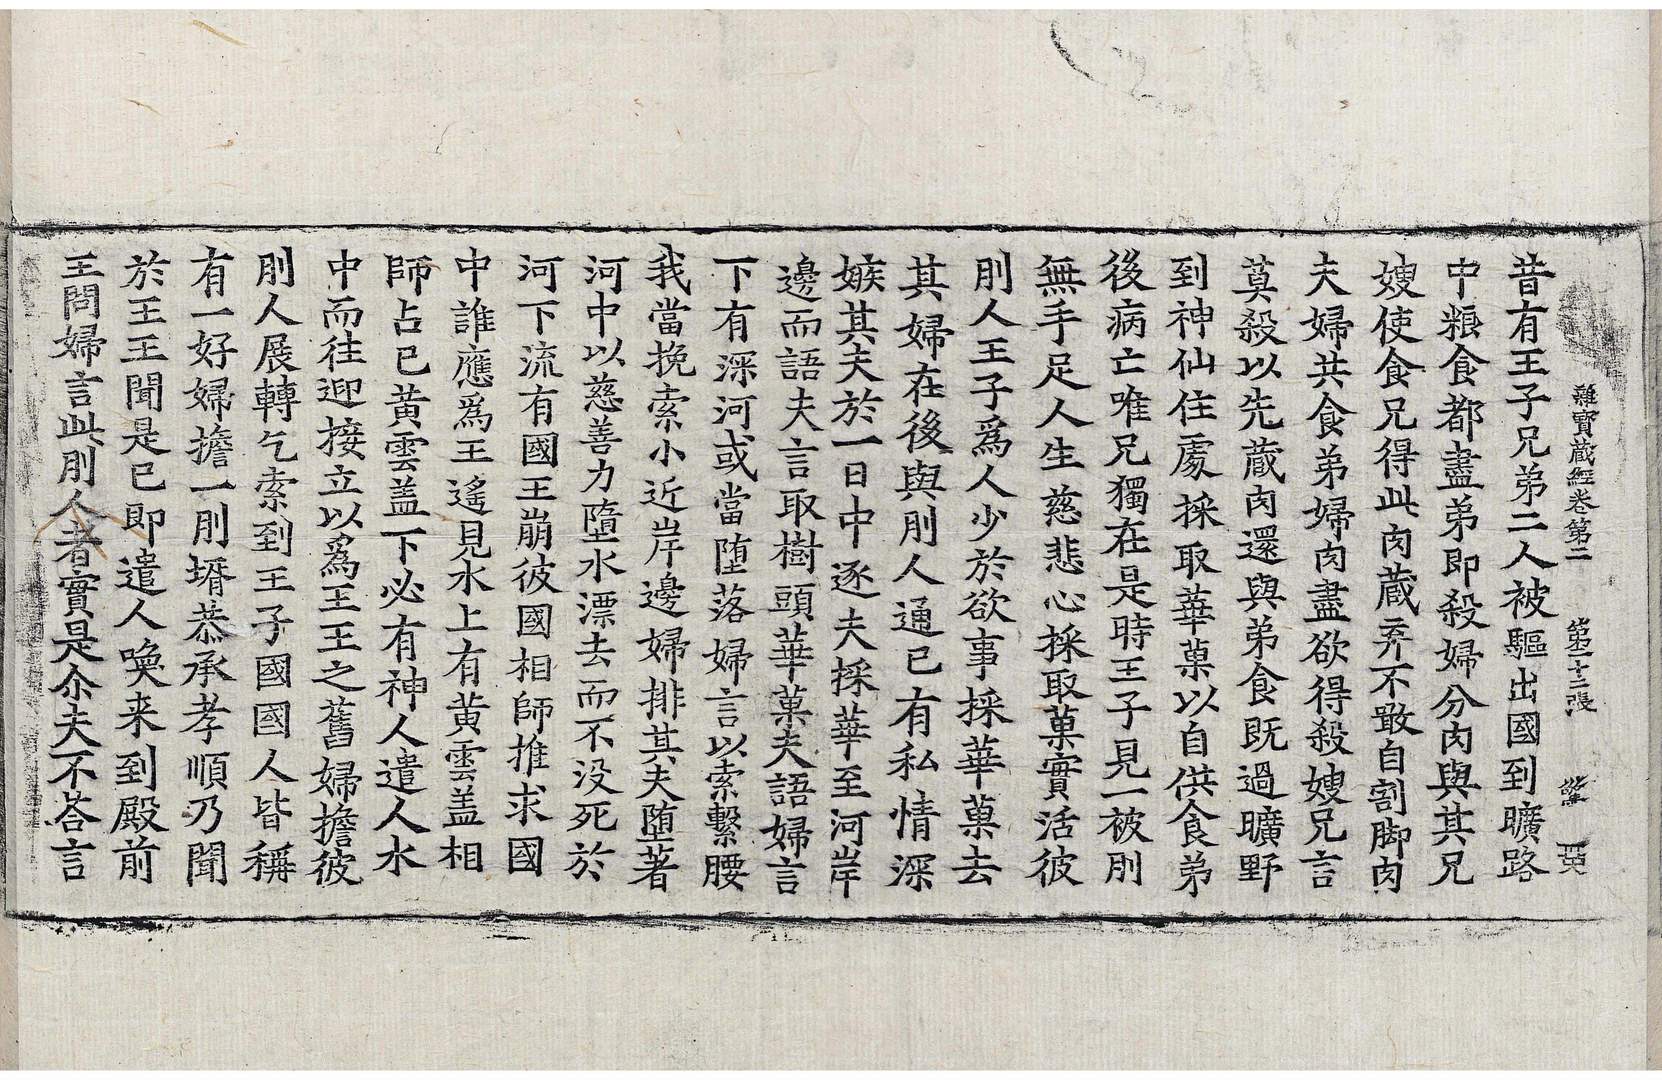 雜寶藏經卷第二 第十二張 驚
昔有王子兄弟二人被驅出國到曠路
中糧食都盡弟即殺婦分肉與其兄
嫂使食兄得此肉藏弃不敢自割脚肉
夫婦共食弟婦肉盡欲得殺嫂兄言
莫殺以先藏肉還與弟食既過曠野
到神仙住處採取華菓以自供食弟
後病亡唯兄獨在是時王子見一被刖
無手足人生慈悲心採取菓實活彼
刖人王子爲人少於欲事採華菓去
其婦在後與刖人通已有私情深
嫉其夫於一日中逐夫採華至河岸
邊而語夫言取樹頭華菓夫語婦言
下有深河或當墮落婦言以索繫腰
我當挽索小近岸邊婦排其夫墮著
河中以慈善力墮水漂去而不没死於
河下流有國王崩彼國相師推求國
中誰應爲王遙見水上有黄雲盖相
師占已黄雲盖下必有神人遣人水
中而往迎接立以爲王王之舊婦擔彼
刖人展轉乞索到王子國國人皆稱
有一好婦擔一刖壻恭承孝順乃聞
於王王聞是已即遣人喚来到殿前
王問婦言此刖人者實是尒夫不荅言